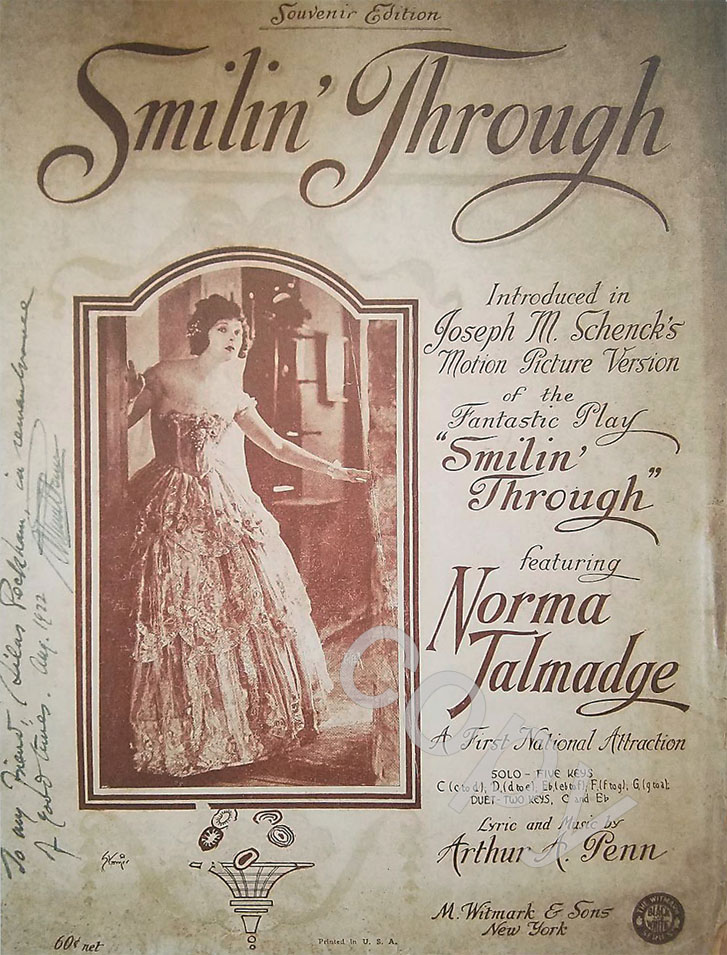 Souvenir Edition
Smilin' Through
Introduced in
Joseph M. Schenck's
Motion Picture Version
of the
Fantastic Play
"Smilin'
Through"
featuring
Norma
Talmadge
A First National Attraction
SOLO - FIVE KEYS
C (c to d), D, (d to e), E♭, (e♭ to f), F, (f to g), G, (g to a);
DUET - TWO KEYS, C and E♭
Lyric and Music by
Arthur A. Penn
M. Witmark & Sons
New York
THE WITMARK
BLACK
AND
WHITE
SERIES
60¢ net
Printed in U. S. A.
To my friend, Silas Peckham, in remembrance
of good times. Aug. 1922
copy